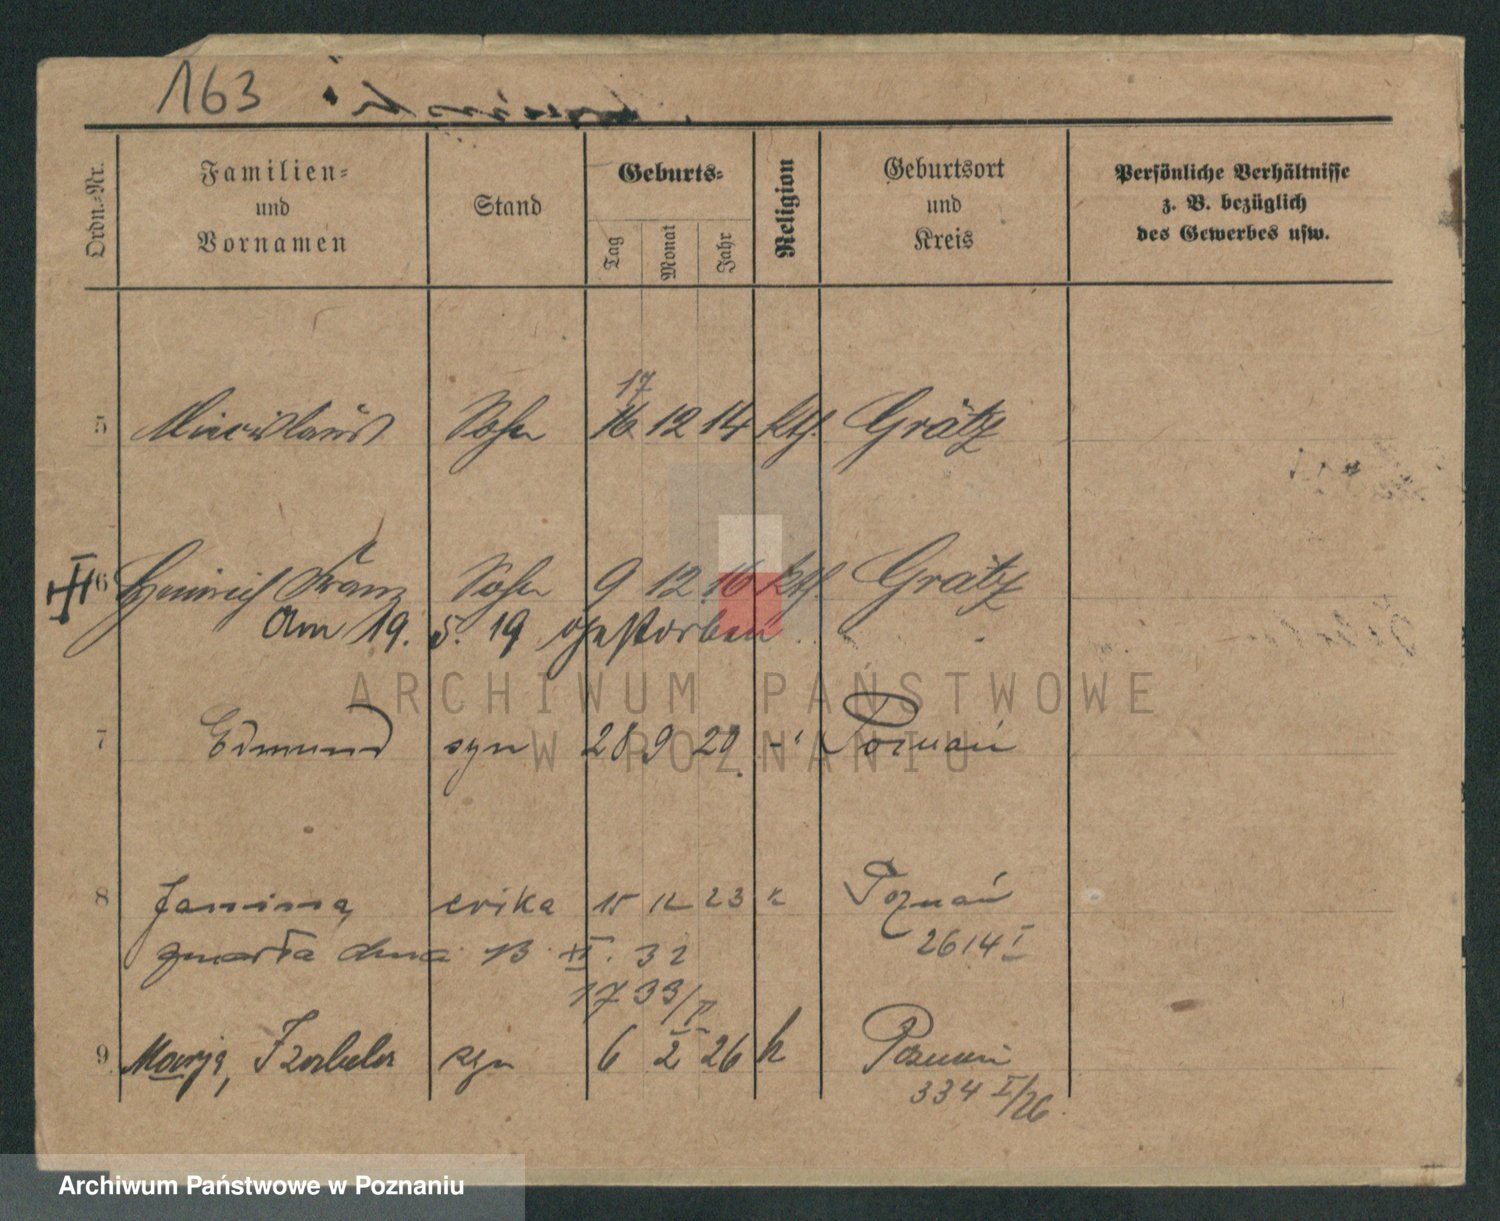 163
Ordn.-Nr.
Familien-
und
Vornamen
Stand
Geburts-
Tag
Monat
Jahr
Religion
Geburtsort
und
Kreis
Persönliche Verhältnisse
z. B. bezüglich
des Gewerbes usw.
17
5 Miecislaus Sohn 16 12 14 kth. Grätz
6 Heinrich Franz Sohn 9 12 16 kth. Grätz
Am 19. 5. 19 gestorben
7 Edmund syn 28 9 20 -" Poznań
8 Janina córka 15 12 23 k Poznań
zmarła dnia 13 XI. 32 2614 I
17 33/II
9 Marja, Izabela syn 6 2 26 k Poznań
334 I/26
ARCHIWUM PAŃSTWOWE
W POZNANIU
Archiwum Państwowe w Poznaniu